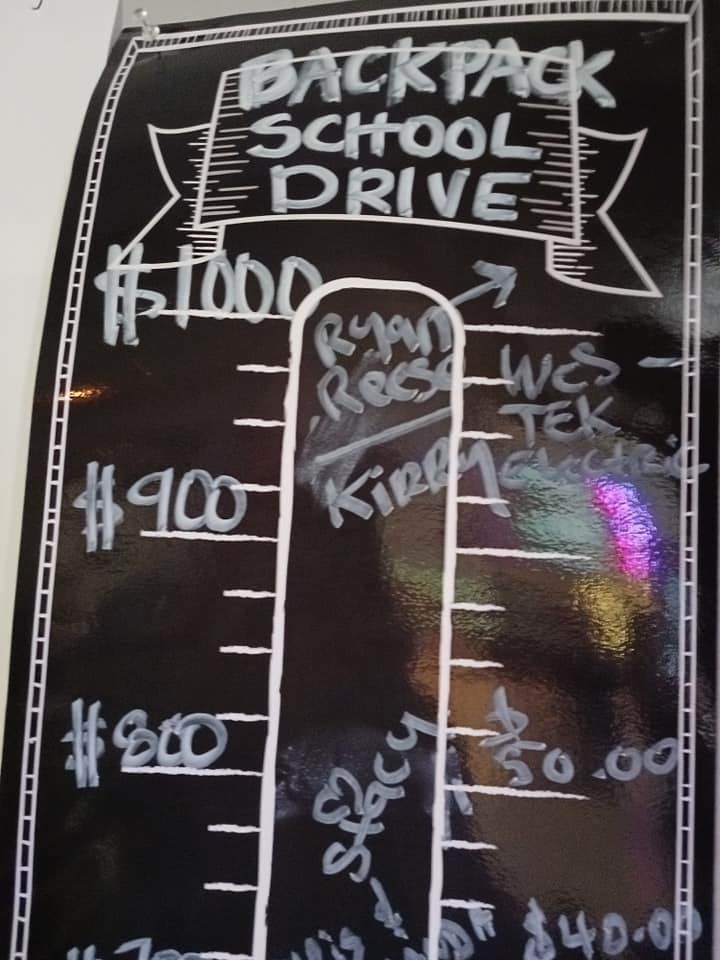 BACKPACK
SCHOOL
DRIVE
$1000
Ryan
Reese
WES-
TEK
ELECTRIC
KIRBY
$900
$800
$50.00
Stacy
$40.00